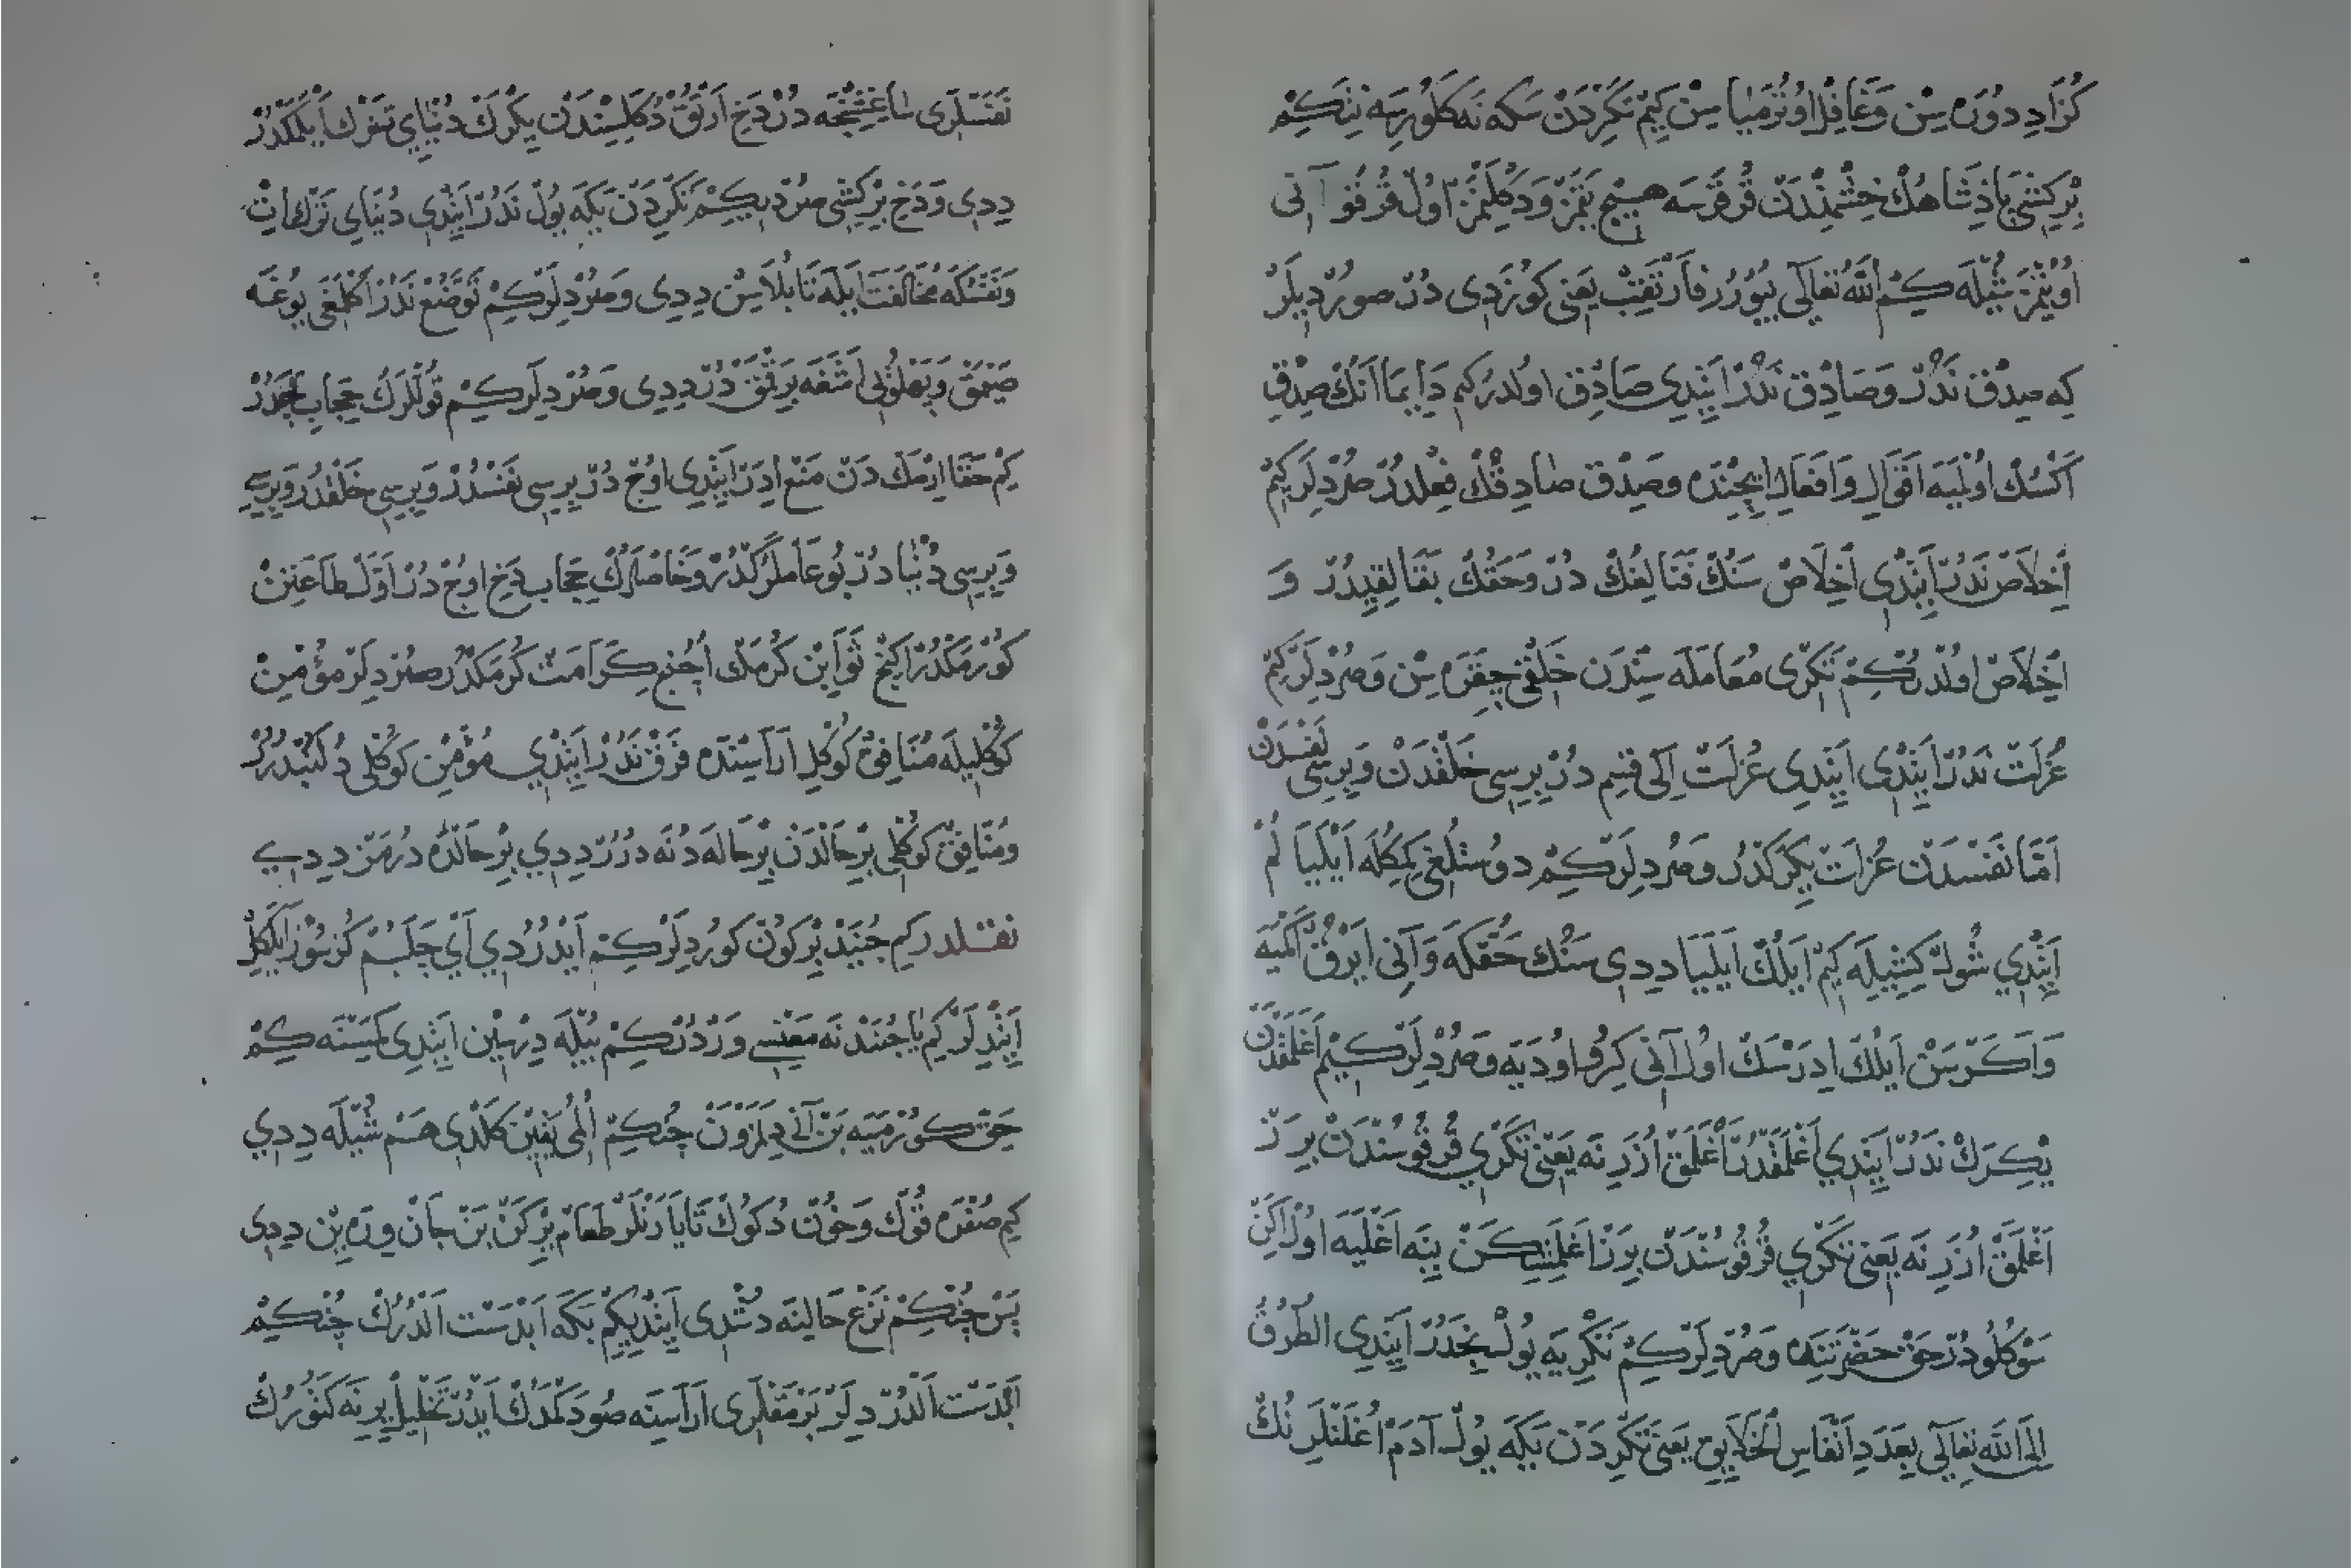 كُزَادِ دُورَه سِن وَغَافِل اوُتُرمَيَا سِن كِيم تَنكرِدَن سَكه نَه كَلُورسَه نِتَكِم
بِر كِشِي پَاذِشَاهُك خِشمِندَن قُرقَرسَه هيچ يَتمَز وَدكلَنمَز اوُل قُرقُو آنِي
اوُيُتمَز شُيلَه كِم اَللّٰه تَعَالَى بُيُورُر فَارتَقِب يَعنِي كوُزَدِى دُر صورُدِيلَر
كه صِدق نَدُر وَصَادِق نَدُر اَيِتدِى صَادِق اولدرُكِم دَايِمَا اَنُك صِدقِ
اَكسُك اوُلمَيَه اَقوَالِ وَاَفعَالِ ايچِندَه وصِدق صَادِقُك فِعلدُر صُردِلَر كِيم
اَخِلَاص نَدُر اَيِتدِي اَخِلَاص سَنُك فَنَا لِغُك دُر وحَقُك بَقَا لِغِيدُر وَ
اَخِلَاص اولدُركِم تَنكرِى مُعَامَلَه سِندَن خَلقِي چِقَرَه سِن وَصُردِلَر كِم
عُزلَت نَدُر اَيِتدِى اَيِتدِى عُزلَت اِكِى قِسِم دُر بِرِسِى خَلقدَن وَبِرسِى نَفسدَن
اَمَّا نَفسدَن عُزلَت يِكرَكدُر وَصُردِلَر كِم دوُستلُغِى كِمكلَه اَيلَيَا لُم
اَيِتدِي شُول كِشِيلَه كِيم اَيلُك اَيلَيَا ددِى سَنُك حَقّكَه وَآنِى اَيرُق اَكمَيَه
وَاَكَر سَن اَيلُك اِدَرسَك اوُل آنِى كِرُو اوُدَيَه وَصُردِلَر كِيم اَغلَمَقدَن
يِكرَك نَدُر اَيِتدِي اَغلَمَقدُر اَغلَمَق اُزَرِنَه يَعنِي تَنكرِي قُرقُوسُندَن بِرَ ز
اَغلَمَق اُزَرِنَه يَعنِى تَنكرِي قُرقُوسُندَن بِرَز اَغلَمِشكَن يِنَه اَغليَه اوُل اَكِن
سَوكلُودُر حَق حَضرَتِندَه وَصُردِلَر كِم تَنكرِيَه يُول نِچَدُر اَيِتدِى الطُرُقُ
اِلَى اللّٰه تَعَالَى بِعَدَدِ اَنفَاسِ الخَلَايِقِ يَعنِي تَنكرِدَن يَكَه يُول آدَم اُغلَنلَرِ نُك
نَفَسلَرِى صَاغِشِنجَه دُر دَخِ اَرتُق دُكَلِسِندَن يِكرَك دُنيَايِ تَرك اَيلَمَكدُر
ددِى وَدَخِ بِر كِشِى صُردِكِم تَنكرِدَن يَكَه يُول نَدُر اَيِتدِي دُنيَايِ تَرك ات
وَنَفسُكَه مُخَالَفَت اَيلَه تَا بُلاَسِن ددِى وَصُردِلَر كِم تَوَضُّع نَدُر اَكلَغِي يُوغَه
صَيمَق وَيَهلُوُلِى اَشَغَه بَرَقمَق دُر ددِى وَصُردِلَر كِم قُوللَرُك حِجَابِ نِچَدُر
كِم حَقّا ارمَك دَن مَنع اِدَر اَيِتدِى اوُچ دُر بِرِسِى نَفسدُر وَبِرِسِى خَلقدُر وَبِرِسِى
وَبِرِسِى دُنيَا دُر بُو عَاملَرُكدُر وَخَاصلَرُك حِجَابِ دَخِ اوچ دُر اَوَّل طَاعَتِن
كوُرمَكدُر اِكِنجِ ثَوَابِن كُرمَك اُچُنجِ كَرَامَت كُرمَكدُر صُردِلَر مؤمِن
كوُكلِيلَه مُنَافِق كوُكلِ اَرَاسِندَه فَرق نَدُر اَيِتدِي مؤمِن كوُكلِى دُكَلِيدُر
ومُنَافِق كوُكلِى بِر حَالدَن بِر حَالَه دُنَه دُرُر ددِي بِر حَالدَه دُرمَز ددِي
نقلدركِم جُنَيد بِر كوُن كوُردِلَر كِم اَيدُرُدِي اَي چَلَبُم كُرسُوز ايلكِل
اَيِتدِلَر كِم يَا جُنَيد نَه مَعنِسِى وَردُر كِم بُيلَه دِرسِن اَيِتدِى كِمسَنَه كِم
حَقّى كورمَيَه بَن آنِى دِلَرُون چُنكِم اُلُم يَقِين كَلدِى هَم شُيلَه ددِي
كِم صُفرَه قُوُك وَخُون دُكوُك تَا يَارَنلَر طَعَام يِركَن بَن جَان ورَه يِن ددِى
پَس چُنكِم نَزع حَالِنَه دُشدِى اَيِتدِكِم بَكَه اَبدَست اَلدُرُك چُنكِم
اَبدَست اَلدُردِلَر بَرمَقلَرِى اَرَاسِنَه صُو دَكمَدُك اَيدُر تَخلِيل يِرِنَه كَتُورُك